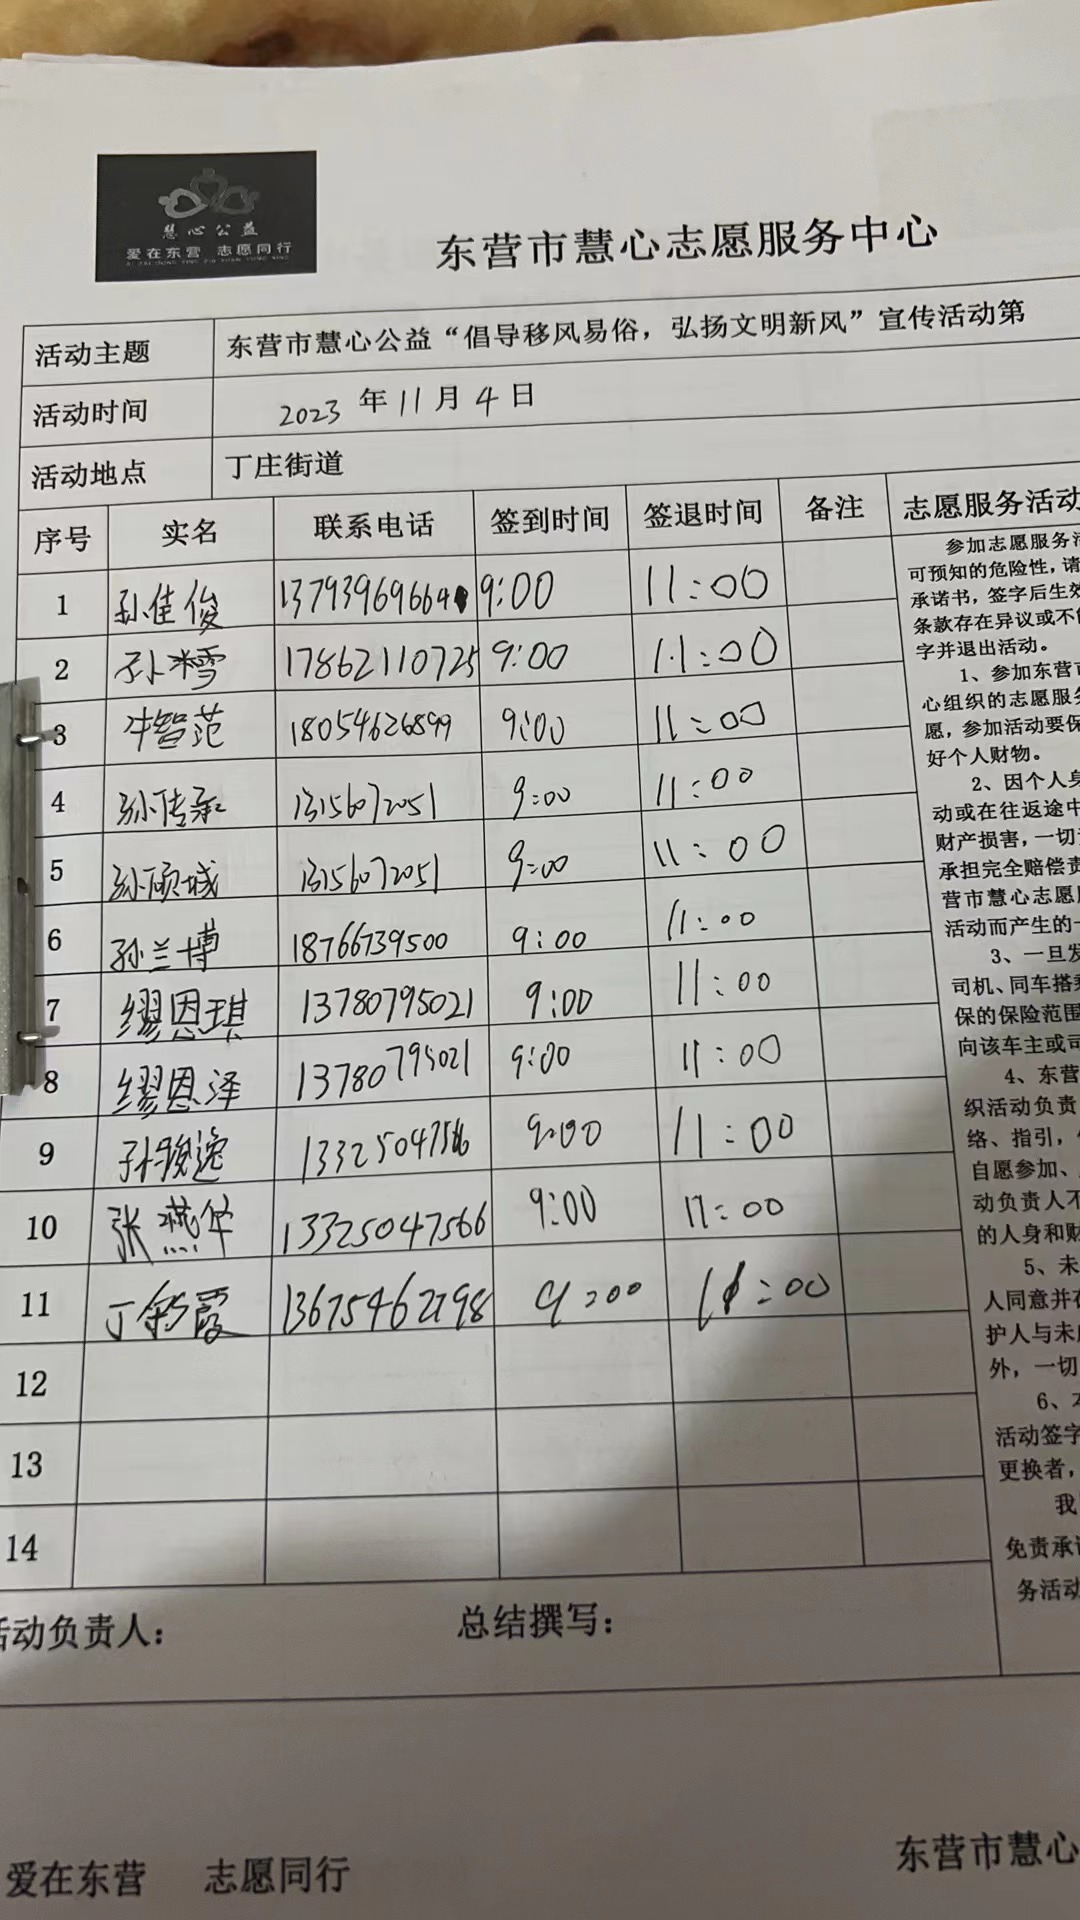 慧心公益
爱在东营 志愿同行
东营市慧心志愿服务中心
活动主题 东营市慧心公益“倡导移风易俗，弘扬文明新风”宣传活动第
活动时间 2023 年 11 月 4 日
活动地点 丁庄街道
序号 实名 联系电话 签到时间 签退时间 备注 志愿服务活动
1 孙佳俊 13793969664 9:00 11:00
2 孙冰雪 17862110725 9:00 11:00
3 牛智范 18054626899 9:00 11:00
4 孙传承 13156072051 9:00 11:00
5 孙倾城 13156072051 9:00 11:00
6 孙兰博 18766739500 9:00 11:00
7 缪恩琪 13780795021 9:00 11:00
8 缪恩泽 13780795021 9:00 11:00
9 孙骏逸 9:00 11:00
10 张燕华 13325047566 9:00 11:00
11 丁彩霞 13675462798 9:00 11:00
12
13
14
参加志愿服务活
可预知的危险性，请
承诺书，签字后生效
条款存在异议或不能
字并退出活动。
1、参加东营市
心组织的志愿服务
愿，参加活动要保
好个人财物。
2、因个人身
动或在往返途中
财产损害，一切
承担完全赔偿责
营市慧心志愿服
活动而产生的一
3、一旦发
司机、同车搭乘
保的保险范围
向该车主或司
4、东营
织活动负责
络、指引，
自愿参加、
动负责人不
的人身和财
5、未
人同意并在
护人与未成
外，一切
6、本
活动签字
更换者，
我
免责承诺
务活动
活动负责人： 总结撰写：
爱在东营 志愿同行 东营市慧心